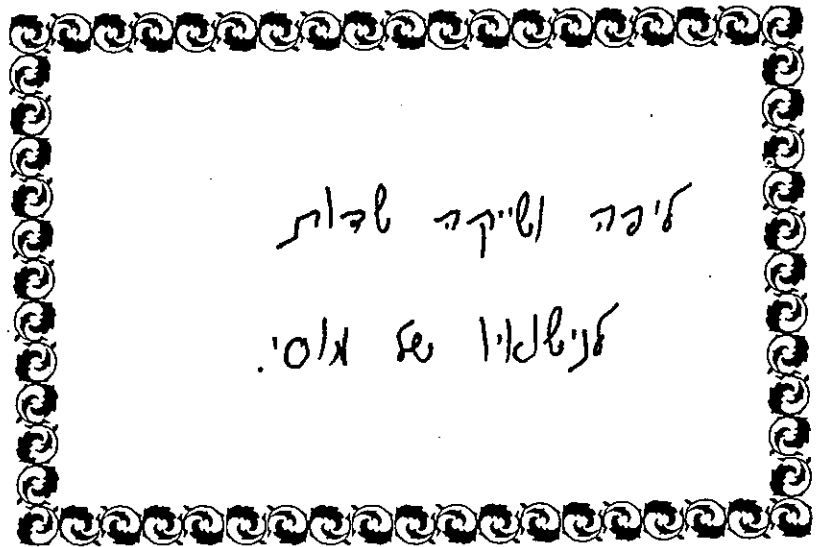 ליפה ושייקה שדות
לנישואיו של מוסי.